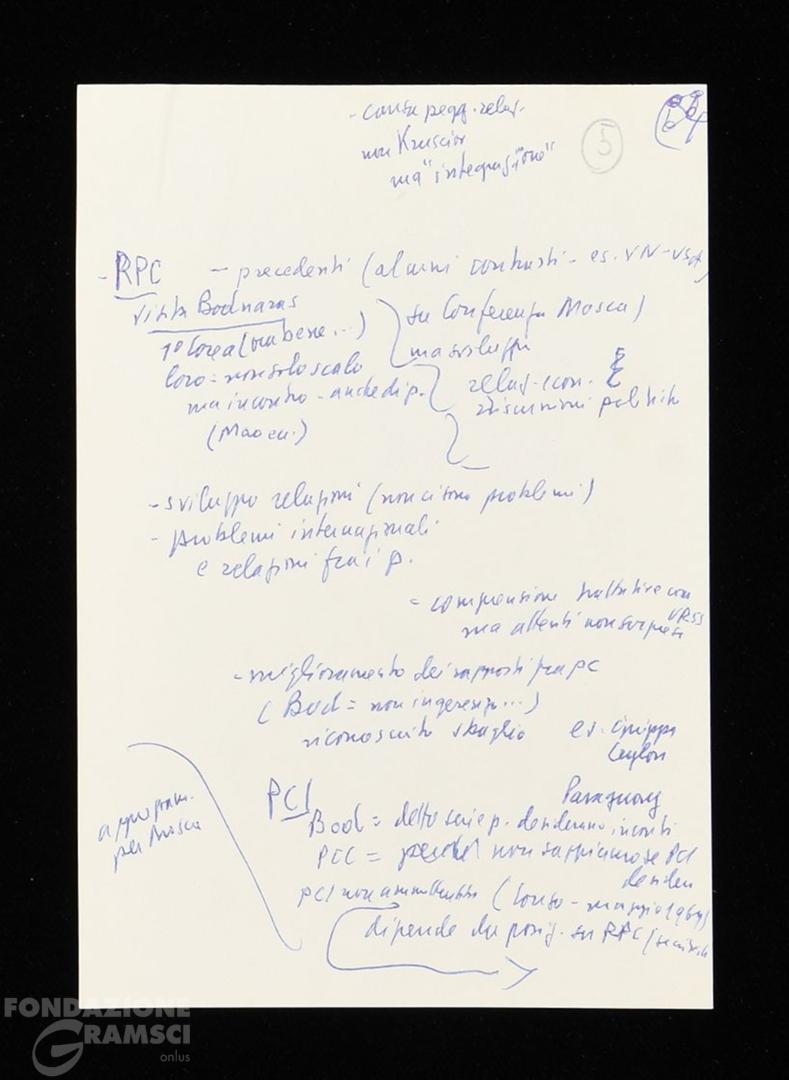 - causa pegg. relaz.
non Krusciov
ma "integraz'one"
5
- RPC - precedenti (alcuni contrasti - es. VN - USA)
visita Bodnaras
su Conferenza Mosca)
1º Corea (va bene...)
ma sviluppi
loro = non solo scalo
relaz. econ.
ma incontro - anche di p.
discussioni politiche
(Mao ecc.)
- sviluppo relazioni (non ci sono problemi)
- problemi internazionali
e relazioni fra i p.
= comprensione trattative con URSS
ma attenti non sorprese
- miglioramento dei rapporti fra pc
(Bod = non ingerenza...)
riconosciuto sbaglio es. gruppi
Ceylon
Paraguay
per Mosca
PCI
Bod = detto serie p. desiderano incontri
PCC = perché non sappiamo se PCI
desidera
PCI non (Longo - maggio 1969)
dipende da posiz. su RPC
FONDAZIONE
GRAMSCI
onlus